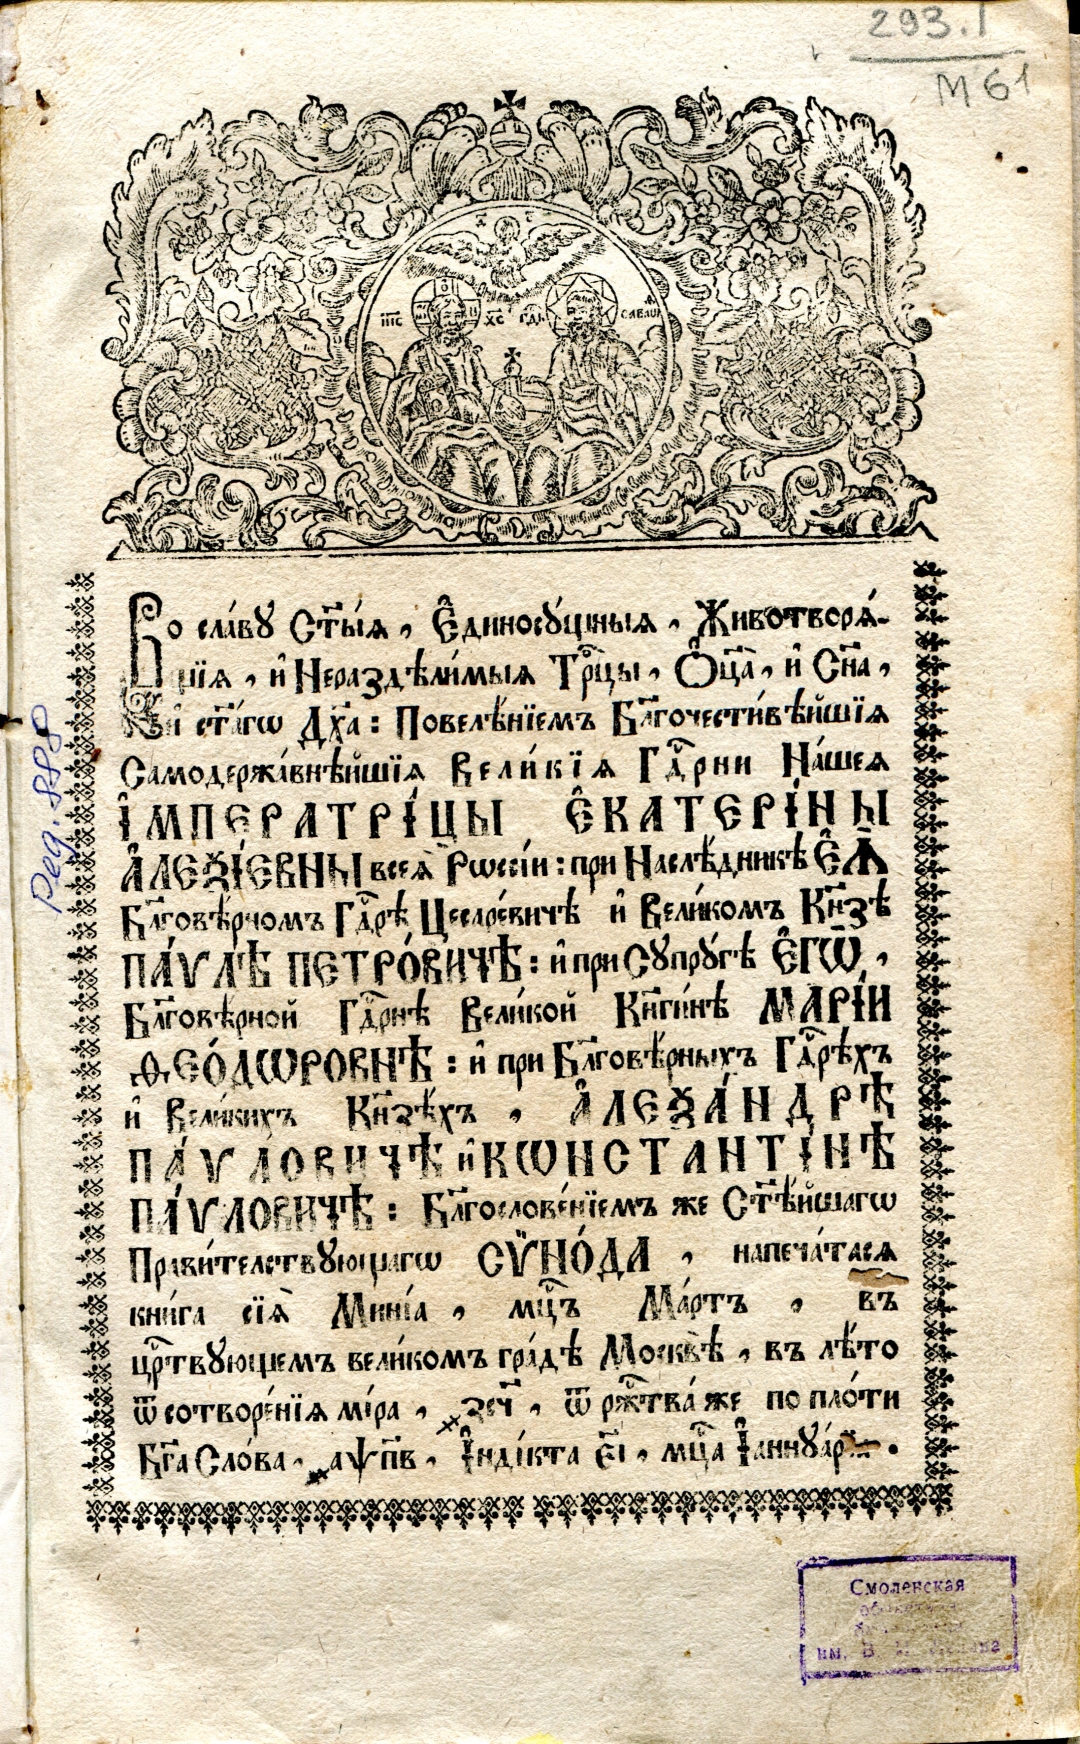 293.1
М61
І҆И҃С ХС҃ ГДⷭ҇Ь САВАѠ
Во сла́вꙋ Ст҃ы́ѧ, Є҆диносꙋ́щныѧ, Животворѧ́-
щїѧ, и҆ Нераздѣли́мыѧ Трⷪ҇цы, Ѻ҆ц҃а̀, и҆ Сн҃а,
и҆ ст҃а́гѡ Дх҃а: Повелѣ́нїемъ Бл҃гочести́вѣйшїѧ
Самодержа́внѣйшїѧ Вели́кїѧ Гдⷭ҇рни На́шеѧ
І҆МПЕРАТРІ́ЦЫ Є҆КАТЕРІ́НЫ
А҆ЛЕѮІ́ЕВНЫ всеѧ̀ Рѡссі́и: при Наслѣ́дникѣ Є҆Ѧ̀
Бл҃говѣ́рномъ Гдⷭ҇рѣ Цесаре́вичѣ и҆ Вели́комъ Кн҃зѣ
ПА́ѴЛѢ ПЕТРО́ВИЧѢ: и҆ при Сꙋпрꙋ́гѣ Є҆ГѠ̀,
Бл҃говѣ́рной Гдⷭ҇рнѣ Вели́кой Кн҃ги́нѣ МАРІ́И
Ѳ҆ЕО́ДѠРОВНѢ: и҆ при Бл҃говѣ́рныхъ Гдⷭ҇рѣхъ
и҆ Вели́кихъ Кн҃зѣхъ, А҆ЛЕѮА́НДРѢ
ПА́ѴЛОВИЧѢ и҆ КѠНСТАНТІ́НѢ
ПА́ѴЛОВИЧѢ: Бл҃гослове́нїемъ же Ст҃ѣ́йшагѡ
Прави́телствꙋющагѡ СѴ̈НО́ДА, напеча́тасѧ
кни́га сїѧ̀ Мині́а, мцⷭ҇ъ Ма́ртъ, въ
црⷭ҇твꙋющемъ вели́комъ гра́дѣ Москвѣ̀, въ лѣ́то
ѿ сотворе́нїѧ мі́ра, ҂зсч҃, ѿ ржⷭ҇тва́ же по пло́ти
Бг҃а Сло́ва, ҂аѱп҃в, І҆ндї́кта є҃і, мцⷭ҇а І҆аннꙋа́р
Ред. 8888
Смоленская
им. В